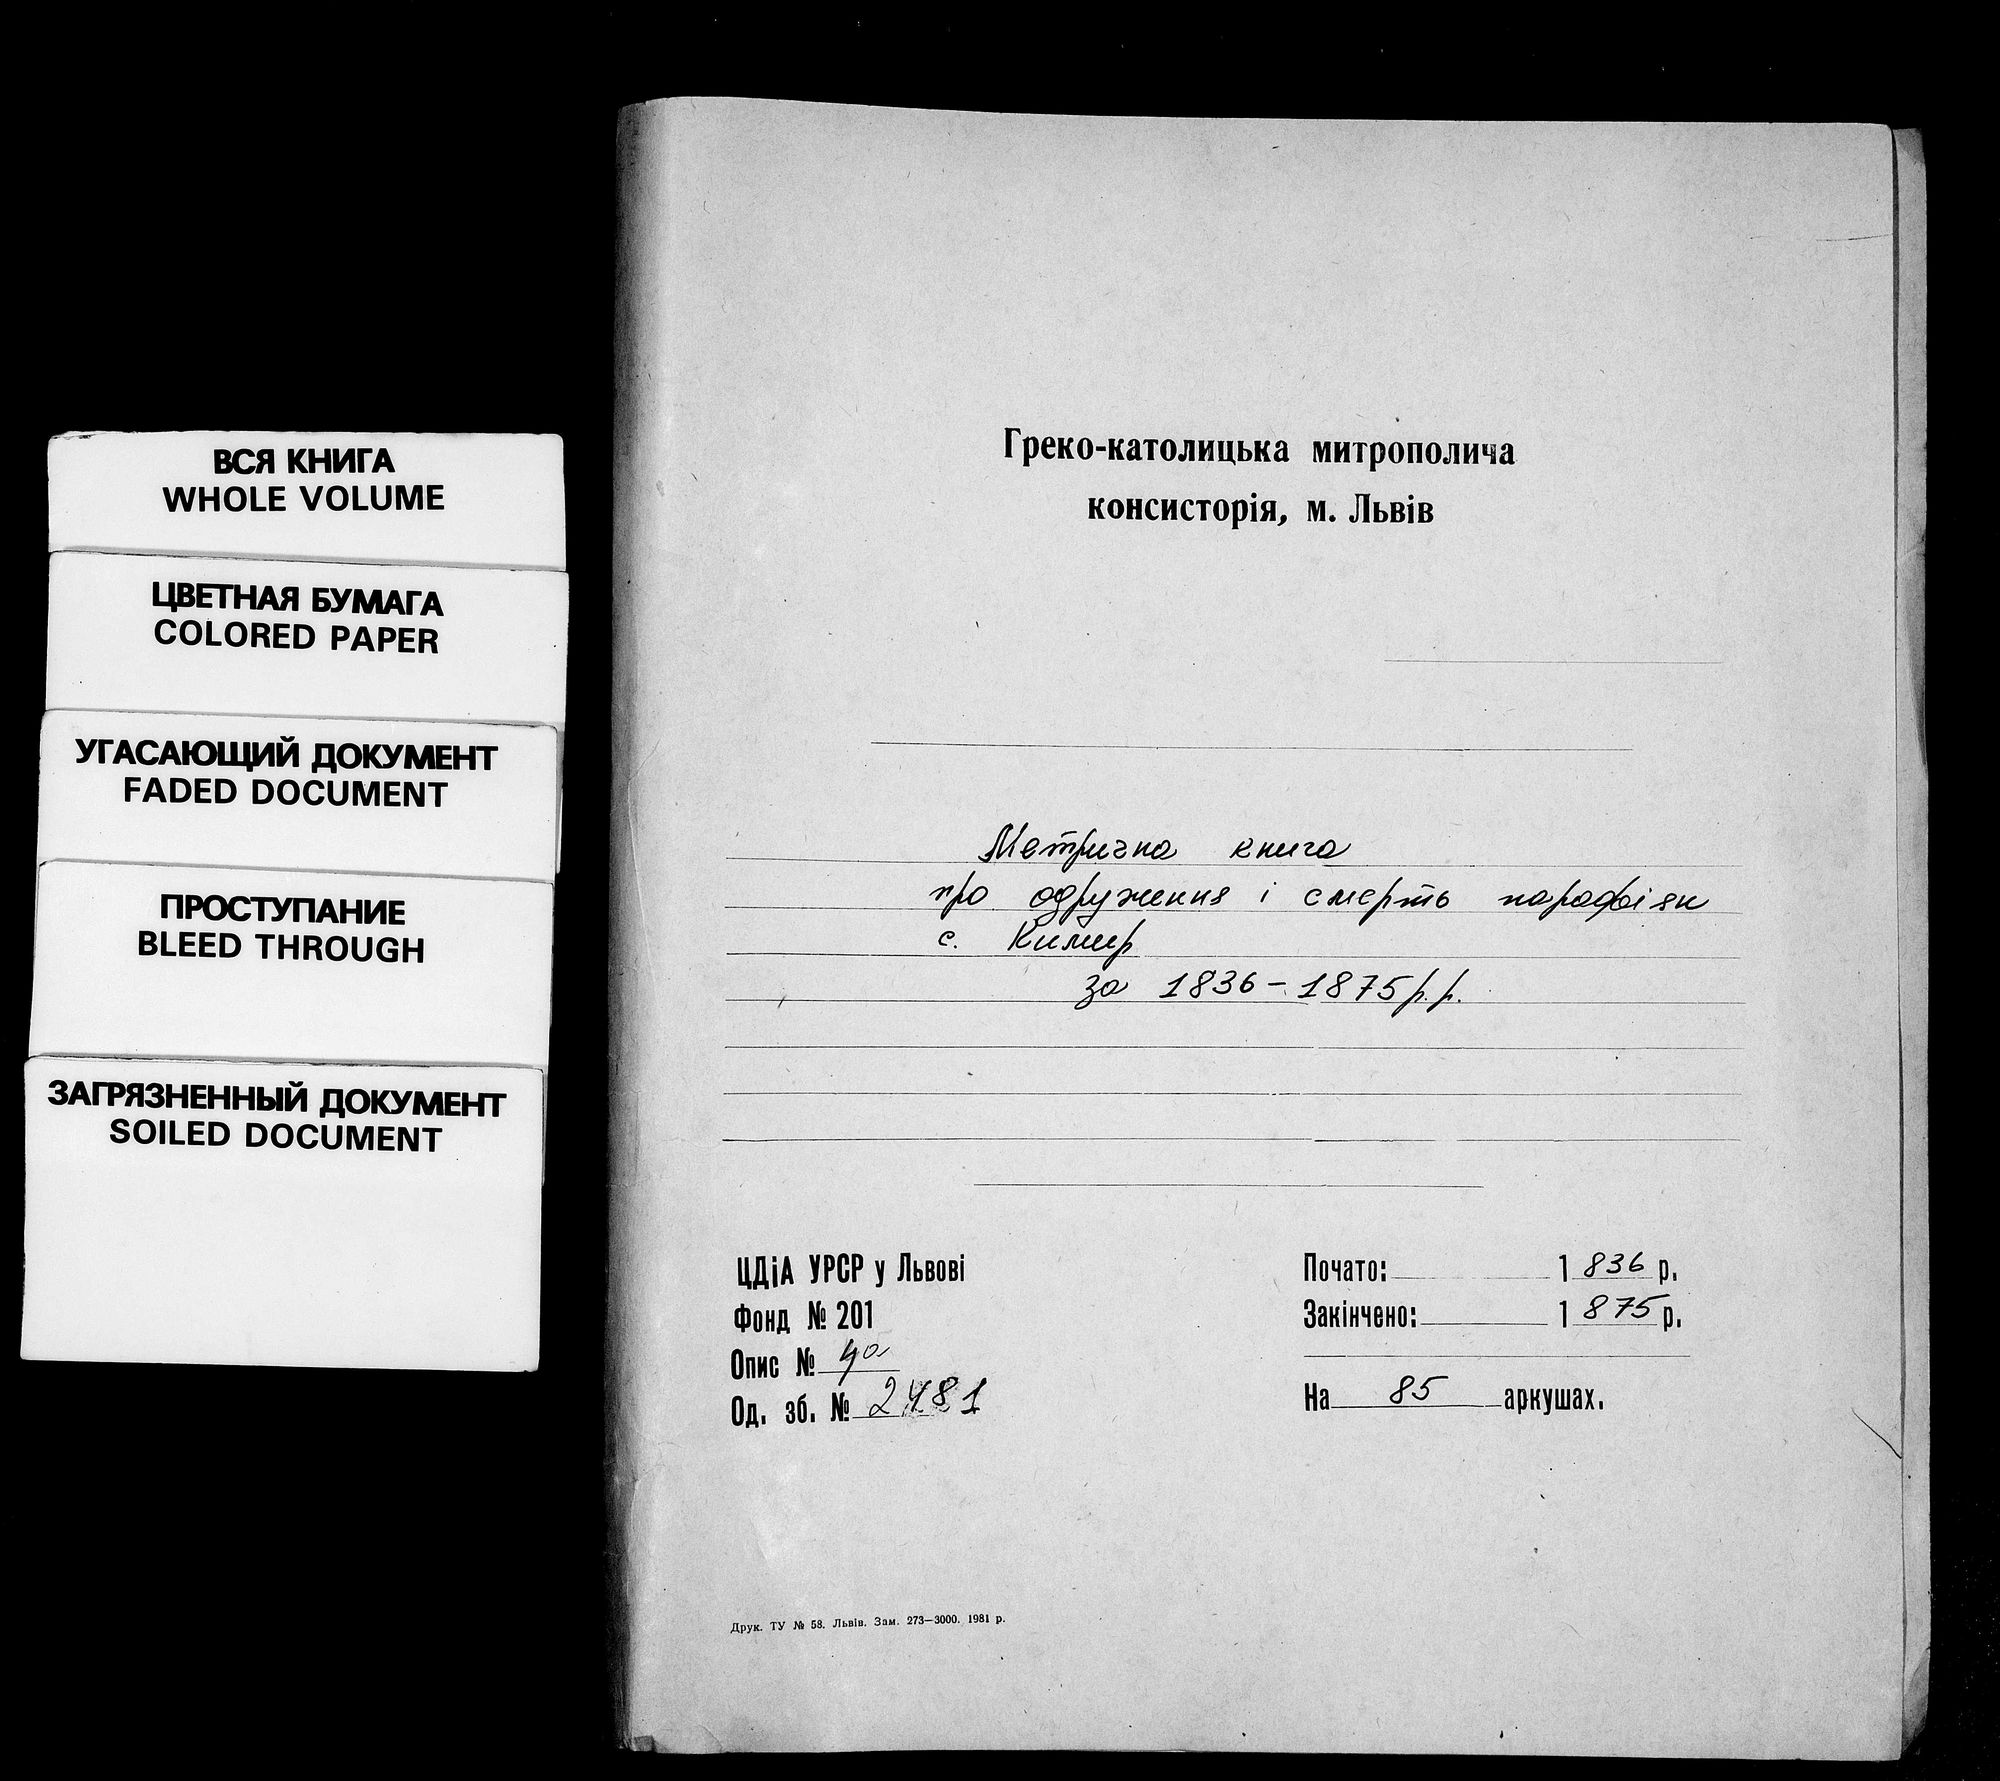 ВСЯ КНИГА
WHOLE VOLUME
ЦВЕТНАЯ БУМАГА
COLORED PAPER
УГАСАЮЩИЙ ДОКУМЕНТ
FADED DOCUMENT
ПРОСТУПАНИЕ
BLEED THROUGH
ЗАГРЯЗНЕННЫЙ ДОКУМЕНТ
SOILED DOCUMENT
Греко-католицька митрополича
консисторія, м. Львів
Метрична книга
про одруження і смерть парафіян
с. Кимир
за 1836 – 1875 р.р.
ЦДіА УРСР у Львові
Фонд № 201
Опис № 4а
Од. зб. № 2481
Почато: 1836 р.
Закінчено: 1875 р.
На 85 аркушах.
Друк. ТУ № 58. Львів. Зам. 273—3000. 1981 р.